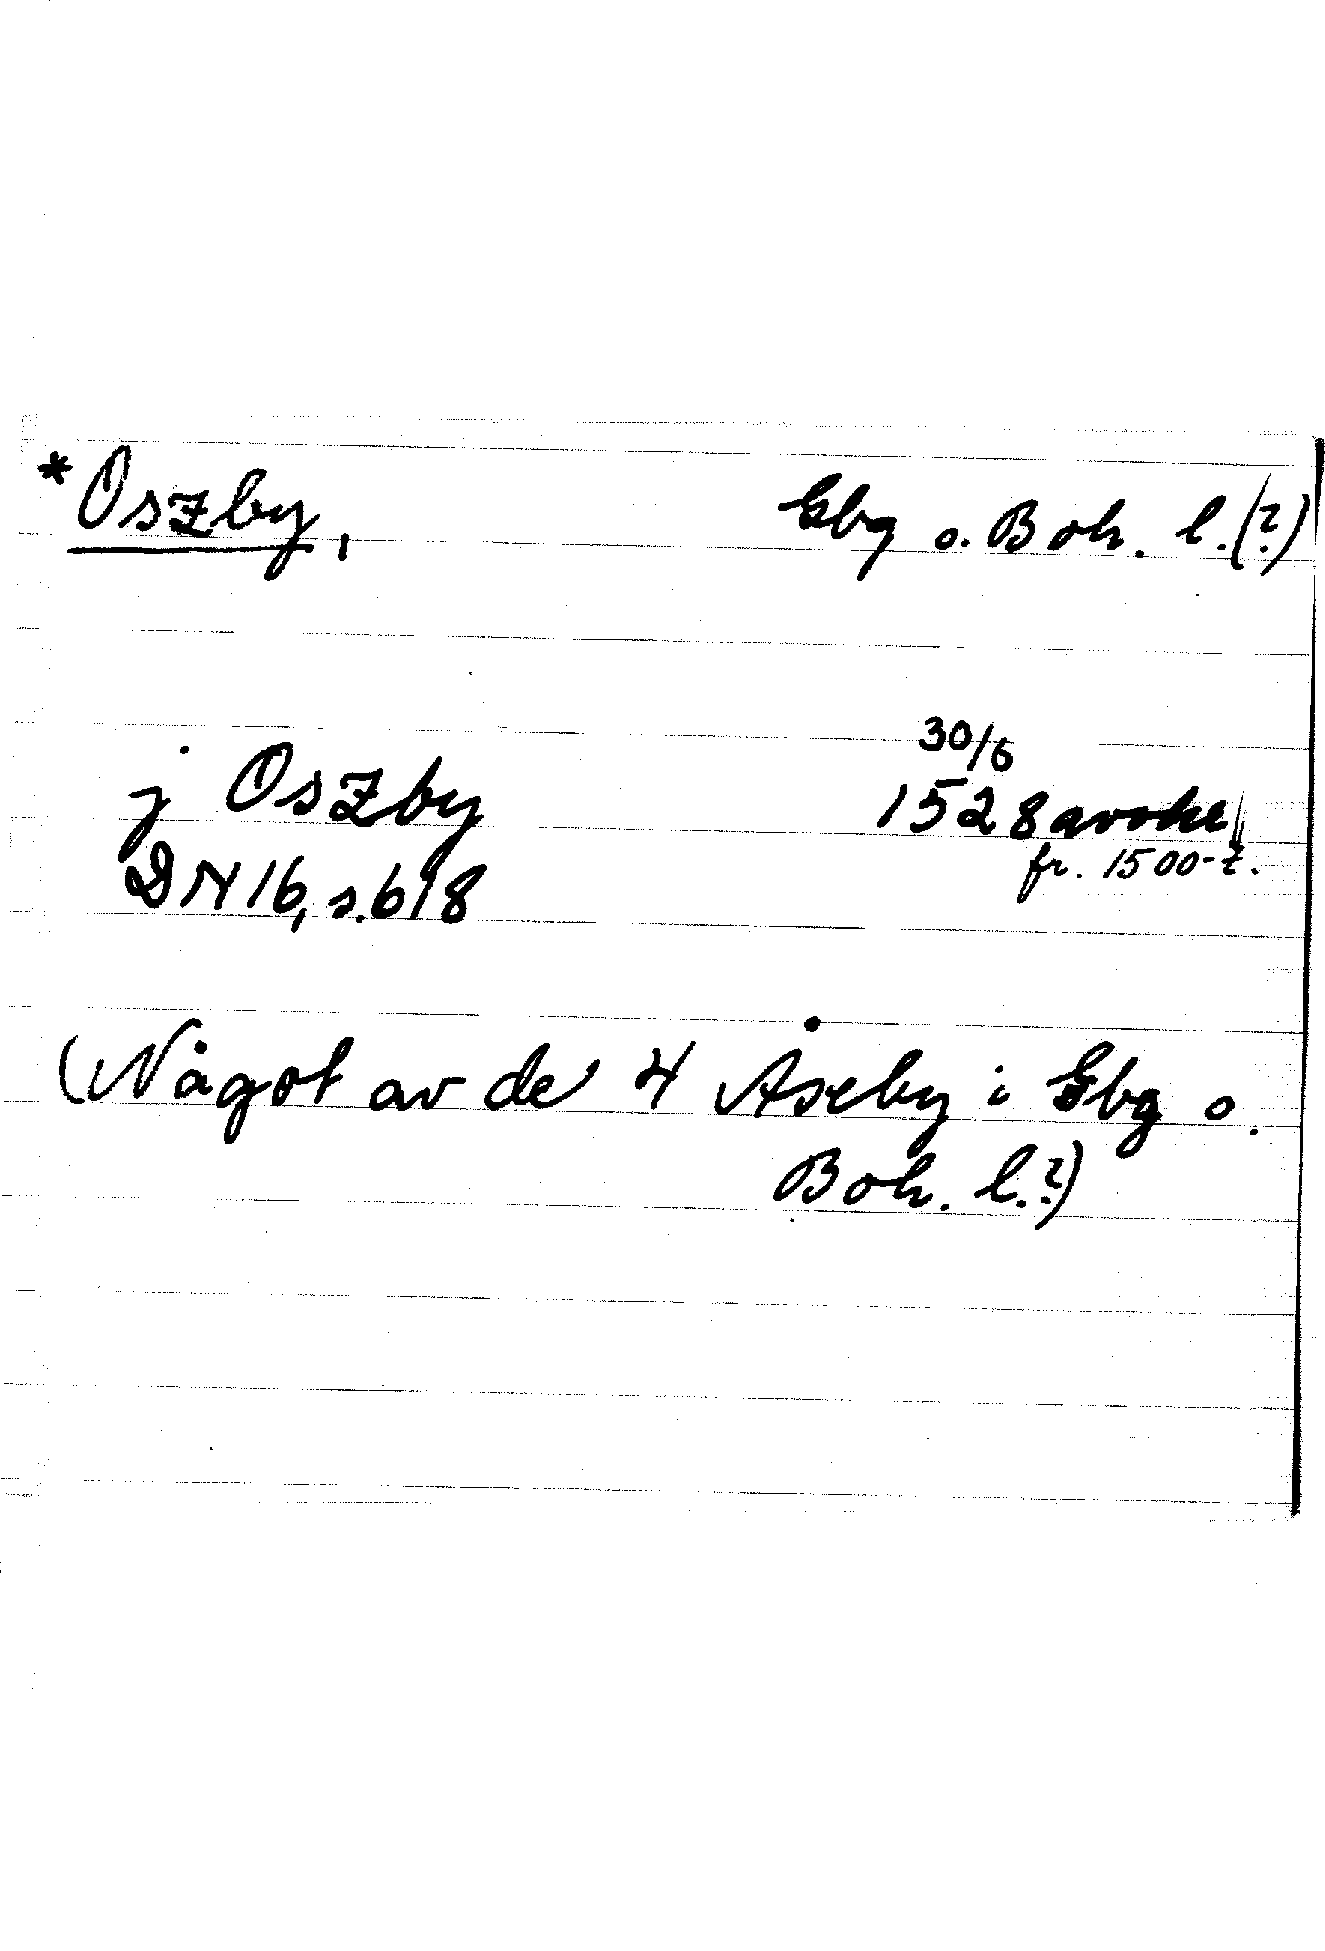 *Oszby, Gbg o. Boh. l. (?)
30/6
j Oszby 1528 avskr
fr. 1500-t.
DN 16, s. 618
(Något av de 4 Åseby i Gbg o.
Boh. l.?)